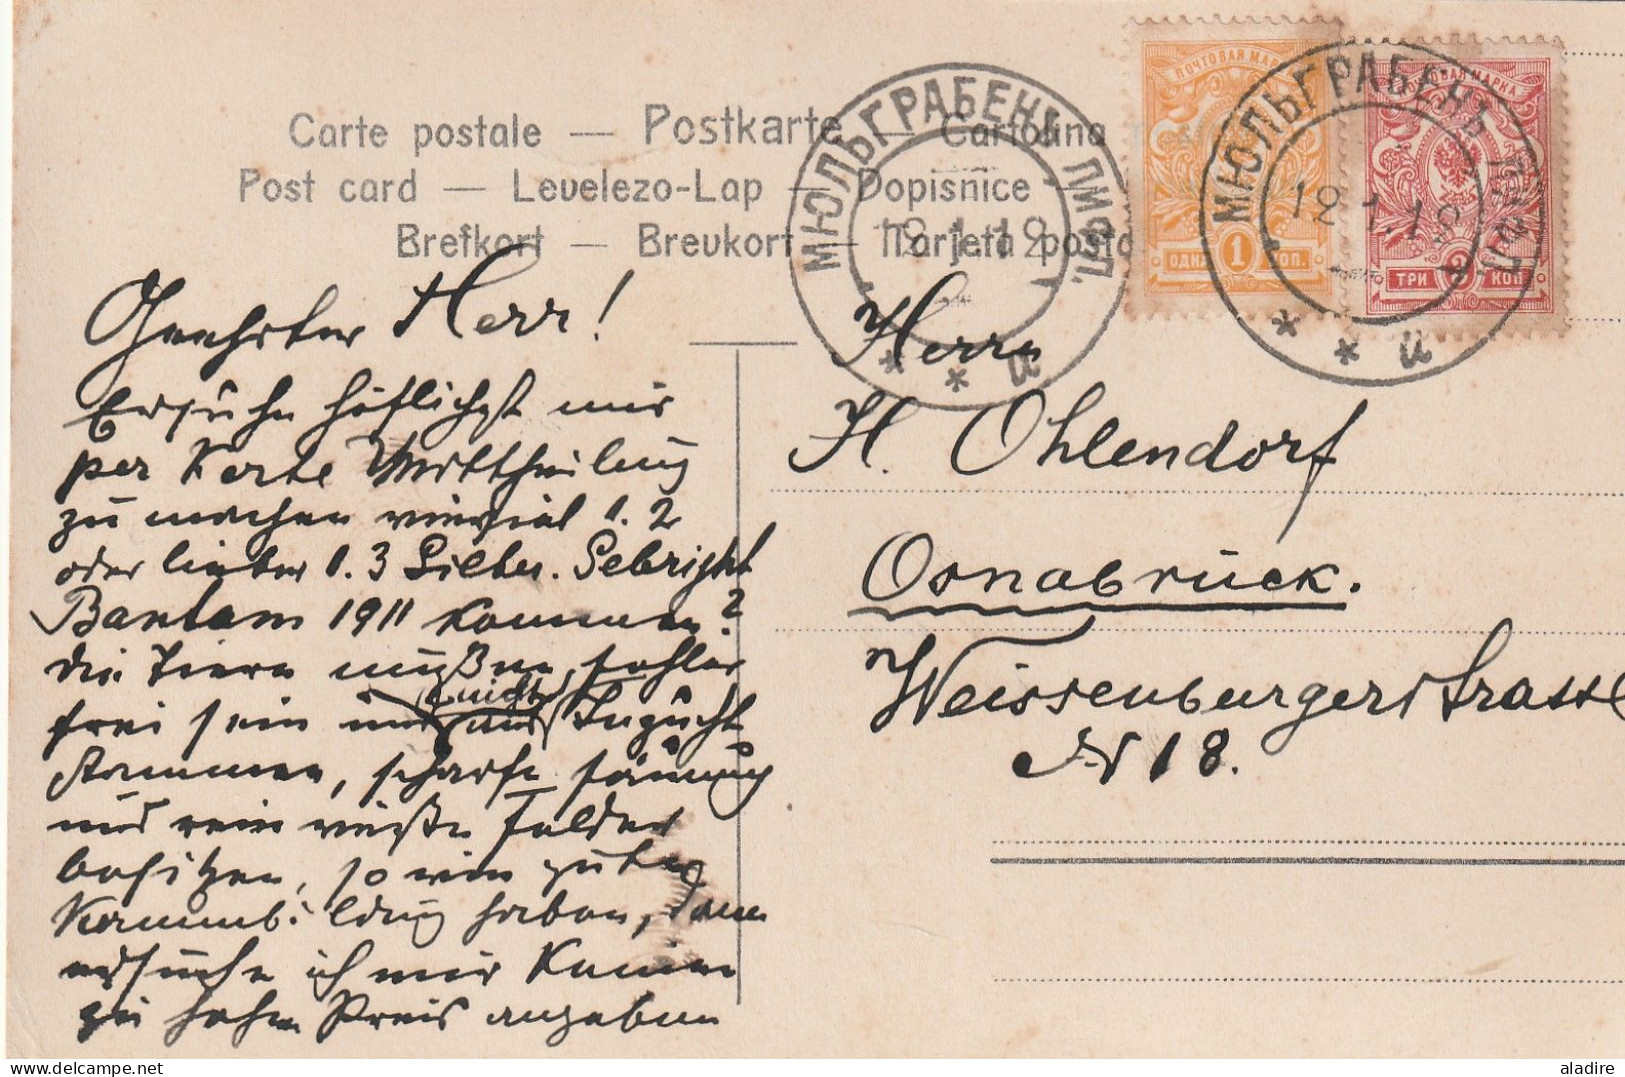 Carte postale — Postkarte — Cartolina
Post card — Levelezo-Lap — Dopisnice —
Brefkort — Brevkort — Tarjeta posta
МЮЛЬГРАБЕНЪ ЛИФЛ.
12.1.12
ПОЧТОВАЯ МАРКА
ОДНА 1 КОП.
МЮЛЬГРАБЕНЪ ЛИФЛ.
12.1.12
ПОЧТОВАЯ МАРКА
ТРИ 3 КОП.
Geehrter Herr!
Ersuche höflichst mir
per Karte Mittheilung
zu machen wieviel 1.2
oder lieber 1.3 Silber. Sebright
Bantam 1911 kommen?
die Tiere müßen, fehler
frei sein und nicht aus Inzucht
stammen, scharfe Säumung
und rein weiße Felder
besitzen, so wie guten
Kammb. ldung haben, dann
ersuche ich mir keinen
zu hohen Preis angeben
Herrn
H. Ohlendorf
Osnabrück.
Weissenburgerstrasse
N 18.
aladire